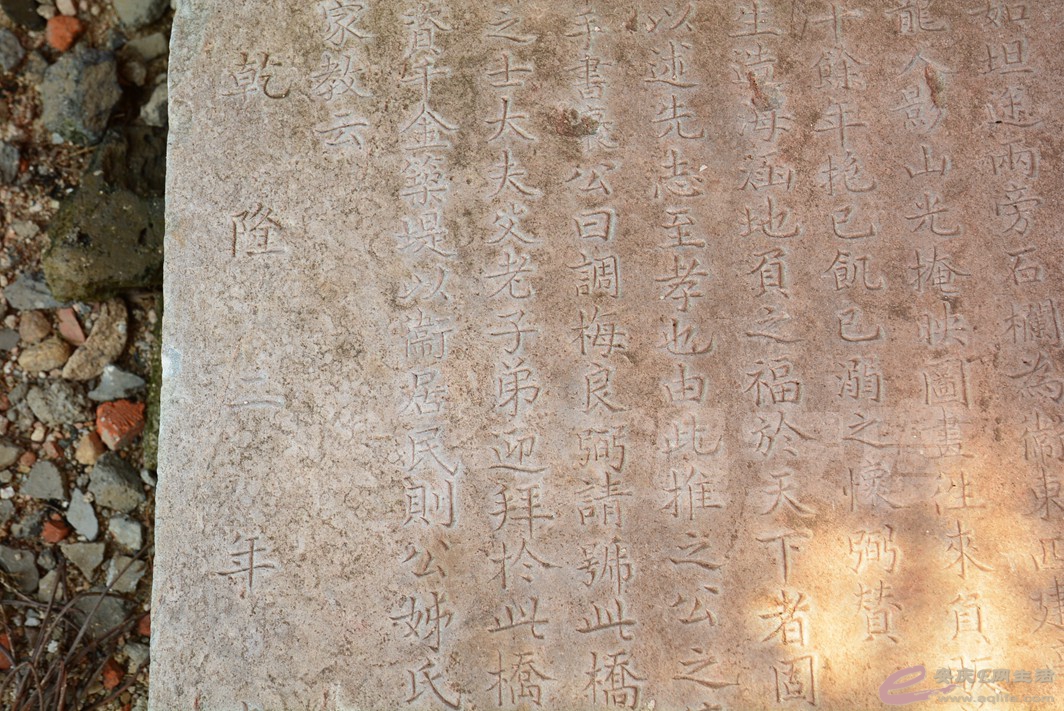 如坦途兩旁石欄為衛東西
龍入影山光掩映圖畫往來負
十餘年抱已飢已溺之懷弼贊
生海涵地負之福於天下者固
以述先志至孝也由此推之公之
手書公曰調梅良弼請號此橋
之士大夫父老子弟迎拜於此橋
資千金築堤以衛居民則公姊氏
家教云
乾隆二年
安庆E网生活
www.aqlife.com